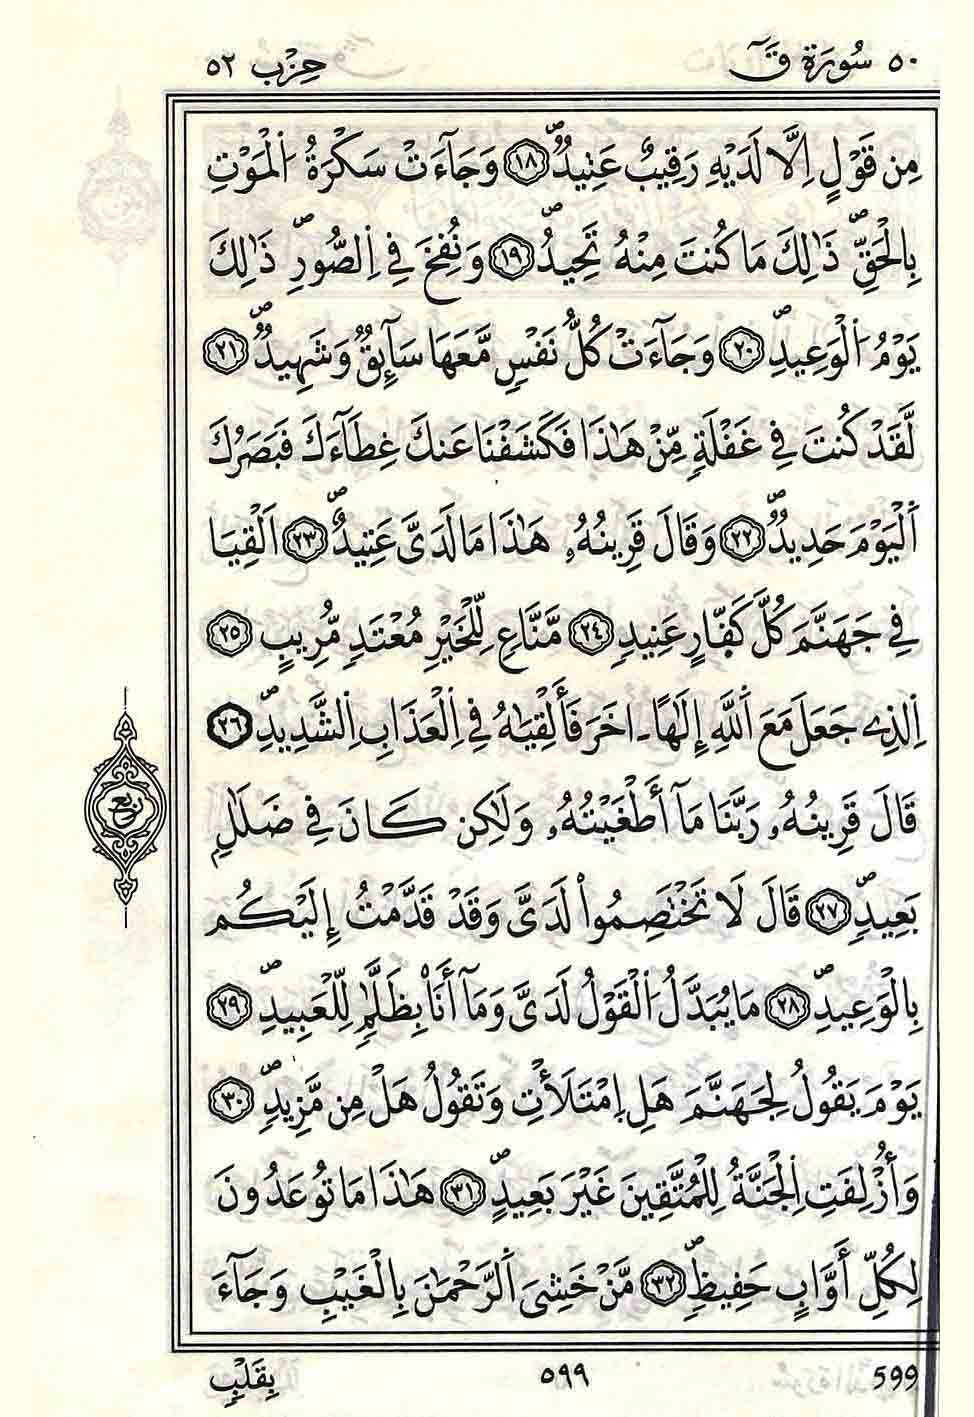 ٥٠ سُورَةُ قَٓ حِزْب ٥٢
مِن قَوْلٍ اِلَّا لَدَيْهِ رَقِيبٌ عَتِيدٌۖ ١٨ وَجَآءَتْ سَكْرَةُ اُ۬لْمَوْتِ
بِالْحَقِّۖ ذَٰلِكَ مَا كُنتَ مِنْهُ تَحِيدُۖ ١٩ وَنُفِخَ فِے اِ۬لصُّورِۖ ذَٰلِكَ
يَوْمُ اُ۬لْوَعِيدِۖ ٢٠ وَجَآءَتْ كُلُّ نَفْسٖ مَّعَهَا سَآئِقٞ وَشَهِيدٞۖ ٢١
لَّقَدْ كُنتَ فِے غَفْلَةٖ مِّنْ هَٰذَا فَكَشَفْنَا عَنكَ غِطَآءَكَ فَبَصَرُكَ
اَ۬لْيَوْمَ حَدِيدٞۖ ٢٢ وَقَالَ قَرِينُهُۥ هَٰذَا مَا لَدَيَّ عَتِيدٌۖ ٢٣ اَلْقِيَا
فِے جَهَنَّمَ كُلَّ كَفّ۪ارٍ عَنِيدٖ ٢٤ مَّنَّاعٖ لِّلْخَيْرِ مُعْتَدٖ مُّرِيبٍ ٢٥
اِ۬لذِے جَعَلَ مَعَ اَ۬للَّهِ إِلَٰهاً ـاخَرَ فَأَلْقِيَٰهُ فِے اِ۬لْعَذَابِ اِ۬لشَّدِيدِۖ ٢٦
قَالَ قَرِينُهُۥ رَبَّنَا مَآ أَطْغَيْتُهُۥ وَلَٰكِن كَانَ فِے ضَلَٰلِۢ
بَعِيدٖۖ ٢٧ قَالَ لَا تَخْتَصِمُواْ لَدَيَّ وَقَدْ قَدَّمْتُ إِلَيْكُم
بِالْوَعِيدِۖ ٢٨ مَا يُبَدَّلُ اُ۬لْقَوْلُ لَدَيَّ وَمَآ أَنَا۠ بِظَلَّٰمٖ لِّلْعَبِيدِۖ ٢٩
يَوْمَ يَقُولُ لِجَهَنَّمَ هَلِ اِ۪مْتَلَأْتِ وَتَقُولُ هَلْ مِن مَّزِيدٖۖ ٣٠
وَأُزْلِفَتِ اِ۬لْجَنَّةُ لِلْمُتَّقِينَ غَيْرَ بَعِيدٍۖ ٣١ هَٰذَا مَا تُوعَدُونَ
لِكُلِّ أَوَّابٍ حَفِيظٖۖ ٣٢ مَّنْ خَشِيَ اَ۬لرَّحْمَٰنَ بِالْغَيْبِ وَجَآءَ
ربع
بِقَلْبٖ ٥٩٩ 599